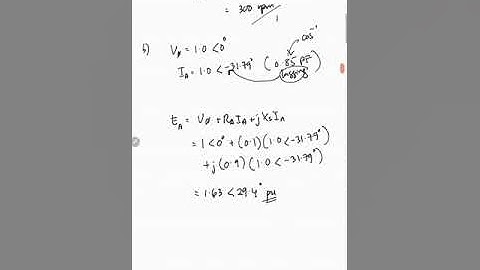 = 300 rpm
b) Vø = 1.0 <0°
cos⁻¹
IA = 1.0 < -31.79° (0.85 PF
lagging)
EA = Vø + RA IA + j Xs IA
= 1 <0° + (0.1)(1.0 < -31.79°)
+ j (0.9) (1.0 < -31.79°)
= 1.63 < 29.4° pu